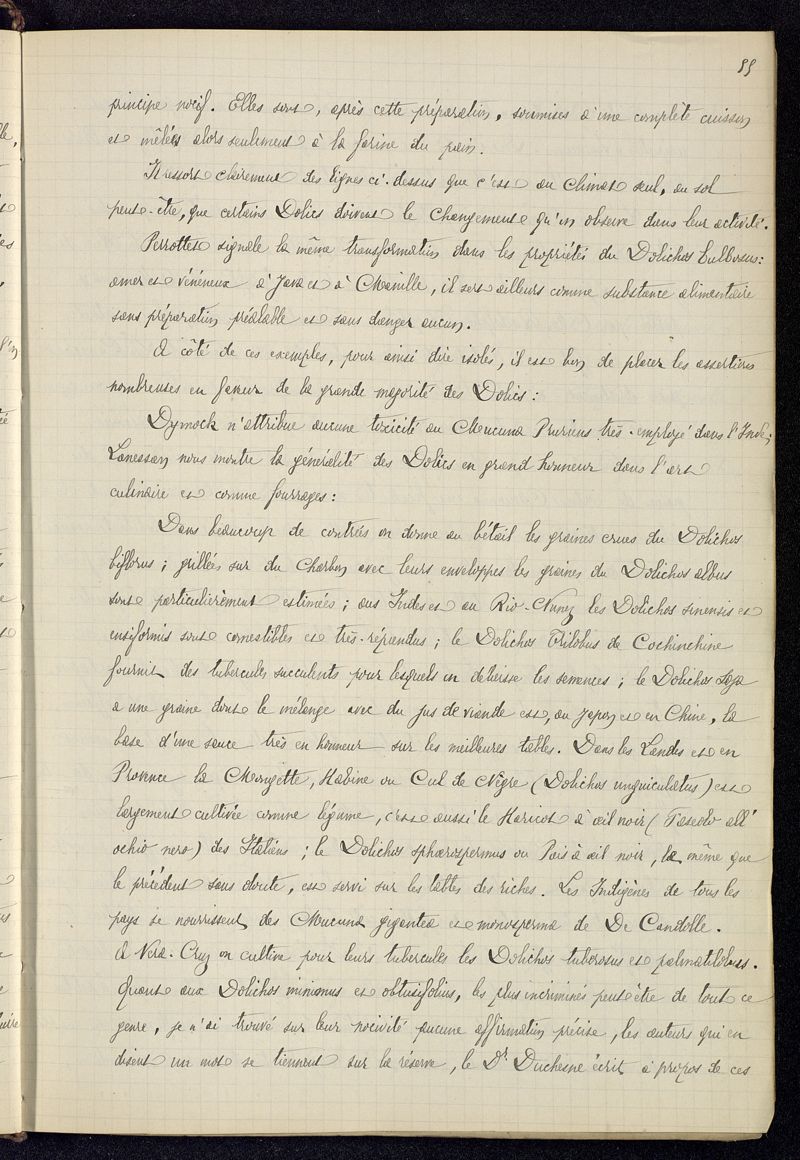 55
principe nocif. Elles sont, après cette préparation, soumises à une complète cuisson
et mêlées alors seulement à la farine du pain.
Il ressort clairement des lignes ci-dessus que c'est au climat seul, au sol
peut-être, que certains Dolics doivent le changement qu'on observe dans leur activité.
Perrottet signale la même transformation dans les propriétés du Dolichos bulbosus:
amer et vénéneux à Java et à Manille, il sert ailleurs comme substance alimentaire
sans préparation préalable et sans danger aucun.
A côté de ces exemples, pour ainsi dire isolés, il est bon de placer les assertions
nombreuses en faveur de la grande majorité des Dolics:
Dymock n'attribue aucune toxicité au Mucuna Pruriens très-employé dans l'Inde;
Lanessan nous montre la généralité des Dolics en grand honneur dans l'art
culinaire et comme fourrages:
Dans beaucoup de contrées on donne au bétail les graines crues du Dolichos
biflorus; grillées sur du charbon avec leurs enveloppes les graines du Dolichos albus
sont particulièrement estimées; aux Indes et au Rio-Nunez les Dolichos sinensis et
ensiformis sont comestibles et très-répandus; le Dolichos Trilobus de Cochinchine
fournit des tubercules succulents pour lesquels on délaisse les semences; le Dolichos Soja
a une graine dont le mélange avec du jus de viande est, au Japon et en Chine, la
base d'une sauce très en honneur sur les meilleures tables. Dans les Landes et en
Provence la Mongette, Habine ou Cul de Nègre (Dolichos unguiculatus) est
largement cultivée comme légume, c'est aussi le Haricot à œil noir (Faseolo all'
ochio nero) des Italiens; le Dolichos sphærospermus ou Pois à œil noir, le même que
le précédent sans doute, est servi sur les tables des riches. Les Indigènes de tous les
pays se nourrissent des Mucuna gigantea et monosperma de De Candolle.
A Vera-Cruz on cultive pour leurs tubercules les Dolichos tuberosus et palmatilobus.
Quant aux Dolichos minimus et obtusifolius, les plus incriminés peut être de tout ce
genre, je n'ai trouvé sur leur nocivité aucune affirmation précise, les auteurs qui en
disent un mot se tiennent sur la réserve, le Dr Duchesne écrit à propos de ces